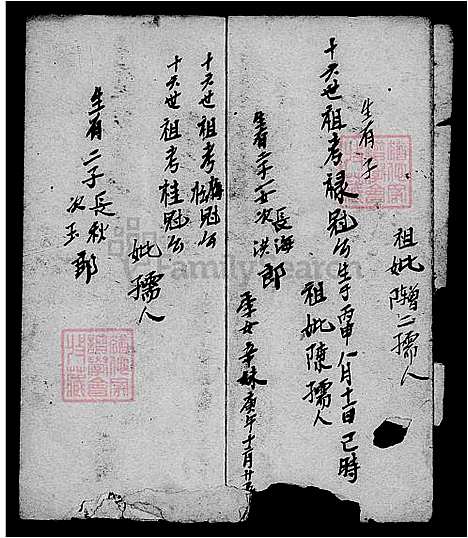 祖妣增二孺人
生有子
十六世祖考祿冠公生于丙申八月十一日巳時
祖妣陳孺人
生有二子一女長海次洪郎
季女辛妹庚午十二月廿
十六世祖考梅冠公
十六世祖考桂冠公
妣孺人
生有二子長秋次玉郎
FamilySearch